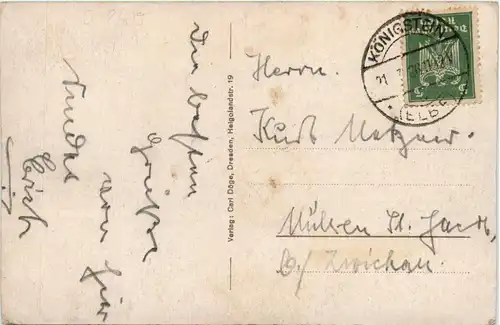 Die besten
Grüße
von hier
sendet
Erich
Verlag: Carl Döge, Dresden, Helgolandstr. 19
KÖNIGSTEIN
(ELBE)
21
5
5
Herrn.
Kurt Metzner.
Mülsen St. Jacob,
b/ Zwickau.